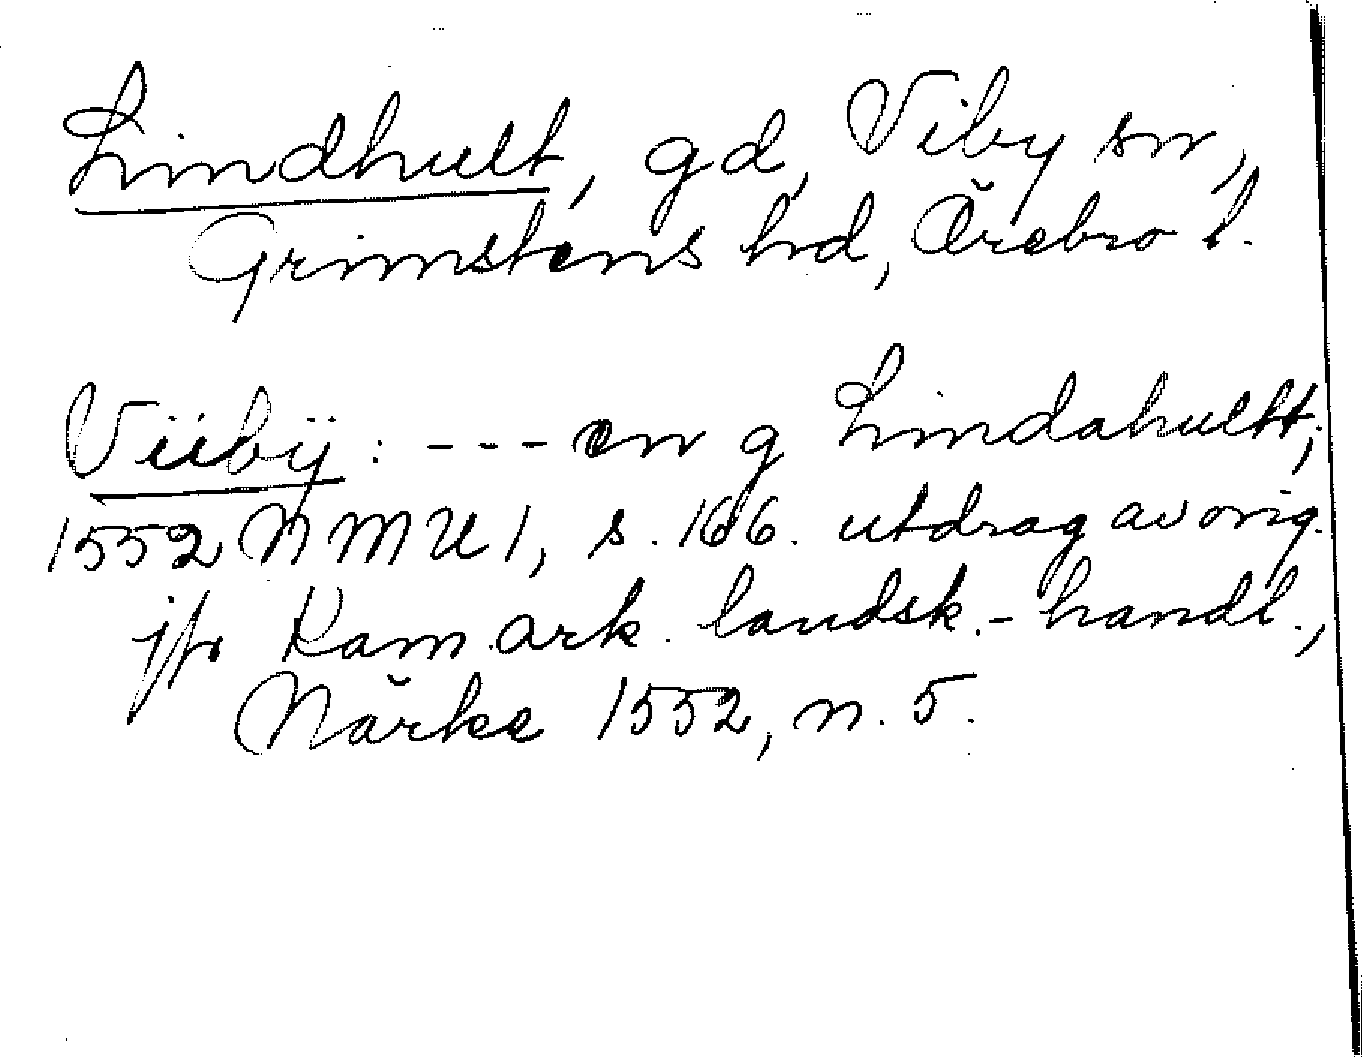 Lindhult, gd, Viby sn,
Grimstens hd, Örebro l.
Viibÿ: --- en g Lindahultt;
1552 NMU 1, s. 166. utdrag av orig.
jfr Kam.ark. landsk.-handl.,
Närke 1552, n. 5.